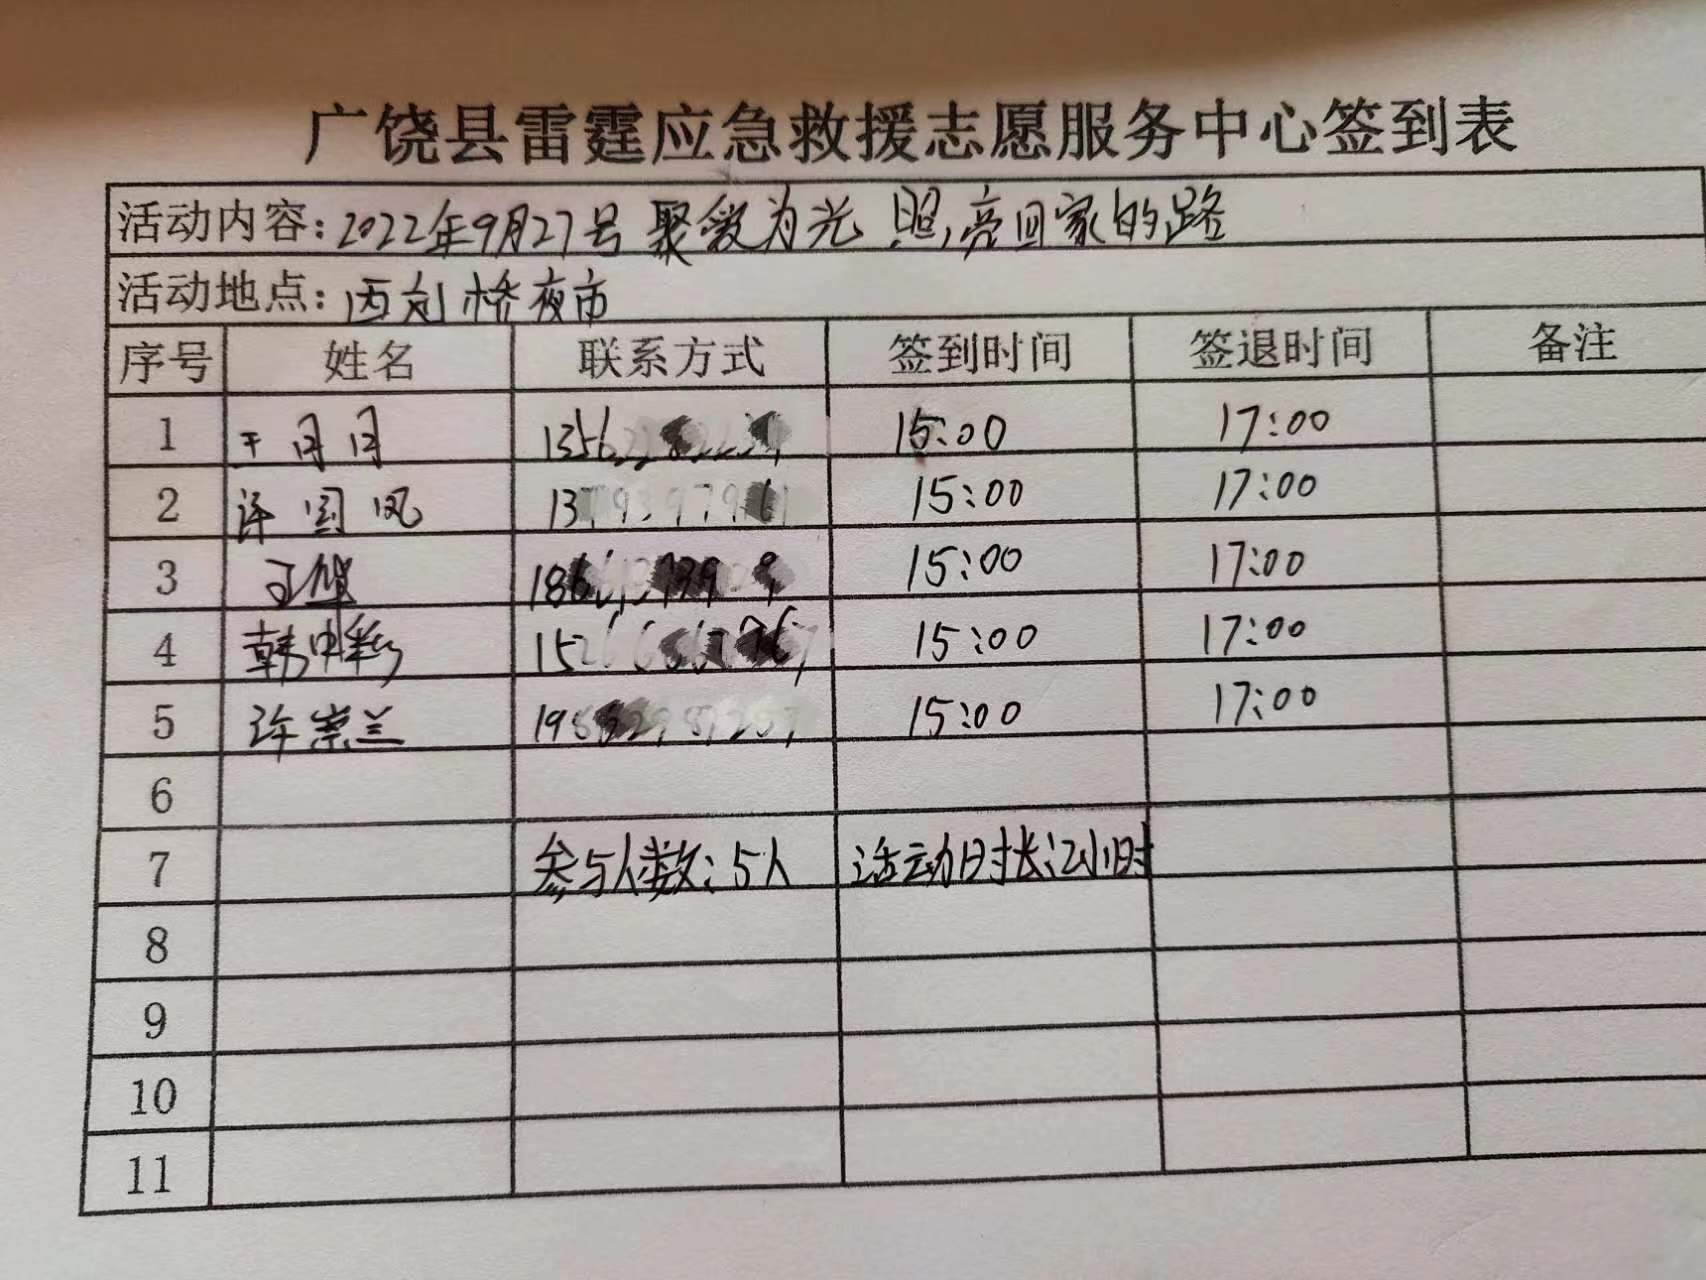 广饶县雷霆应急救援志愿服务中心签到表
活动内容: 2022年9月27号 聚爱为光 照亮回家的路
活动地点: 西刘桥夜市
序号 姓名 联系方式 签到时间 签退时间 备注
1 王月月 15:00 17:00
2 许国凤 15:00 17:00
3 15:00 17:00
4 15:00 17:00
5 许崇兰 15:00 17:00
6
7 参与人数: 5人 活动时长: 2小时
8
9
10
11